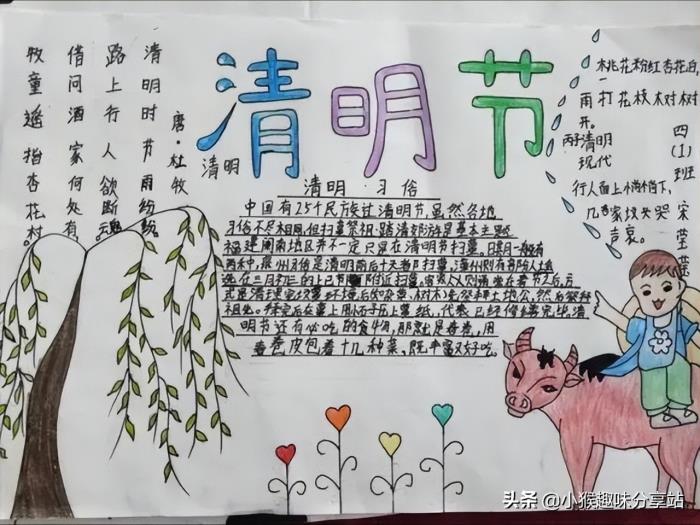 清明节
清明时节雨纷纷
路上行人欲断魂
借问酒家何处有
牧童遥指杏花村。
唐·杜牧
清明
清明 习俗
中国有25个民族过清明节,虽然各地
习俗不尽相同,但扫墓祭祖、踏青郊游是基本主题
福建闽南地区并不一定只是在清明节扫墓。
两种,泉州习俗是清明前后十天都扫墓,漳州则有部分人
现在三月初三的上巳节附近扫墓。
式是清理完坟墓环境后
祖先。
明节还有必吃的食物,那就是春卷,用
春卷皮包着十几种菜,既丰富又好吃。
桃花粉红杏花白,一
雨打花枝树树
开。
丙子清明
现代
行人面上悄悄下,
几处家坟夹哭
声哀。
四(1)班
宋莹莹
头条 @小猴趣味分享站